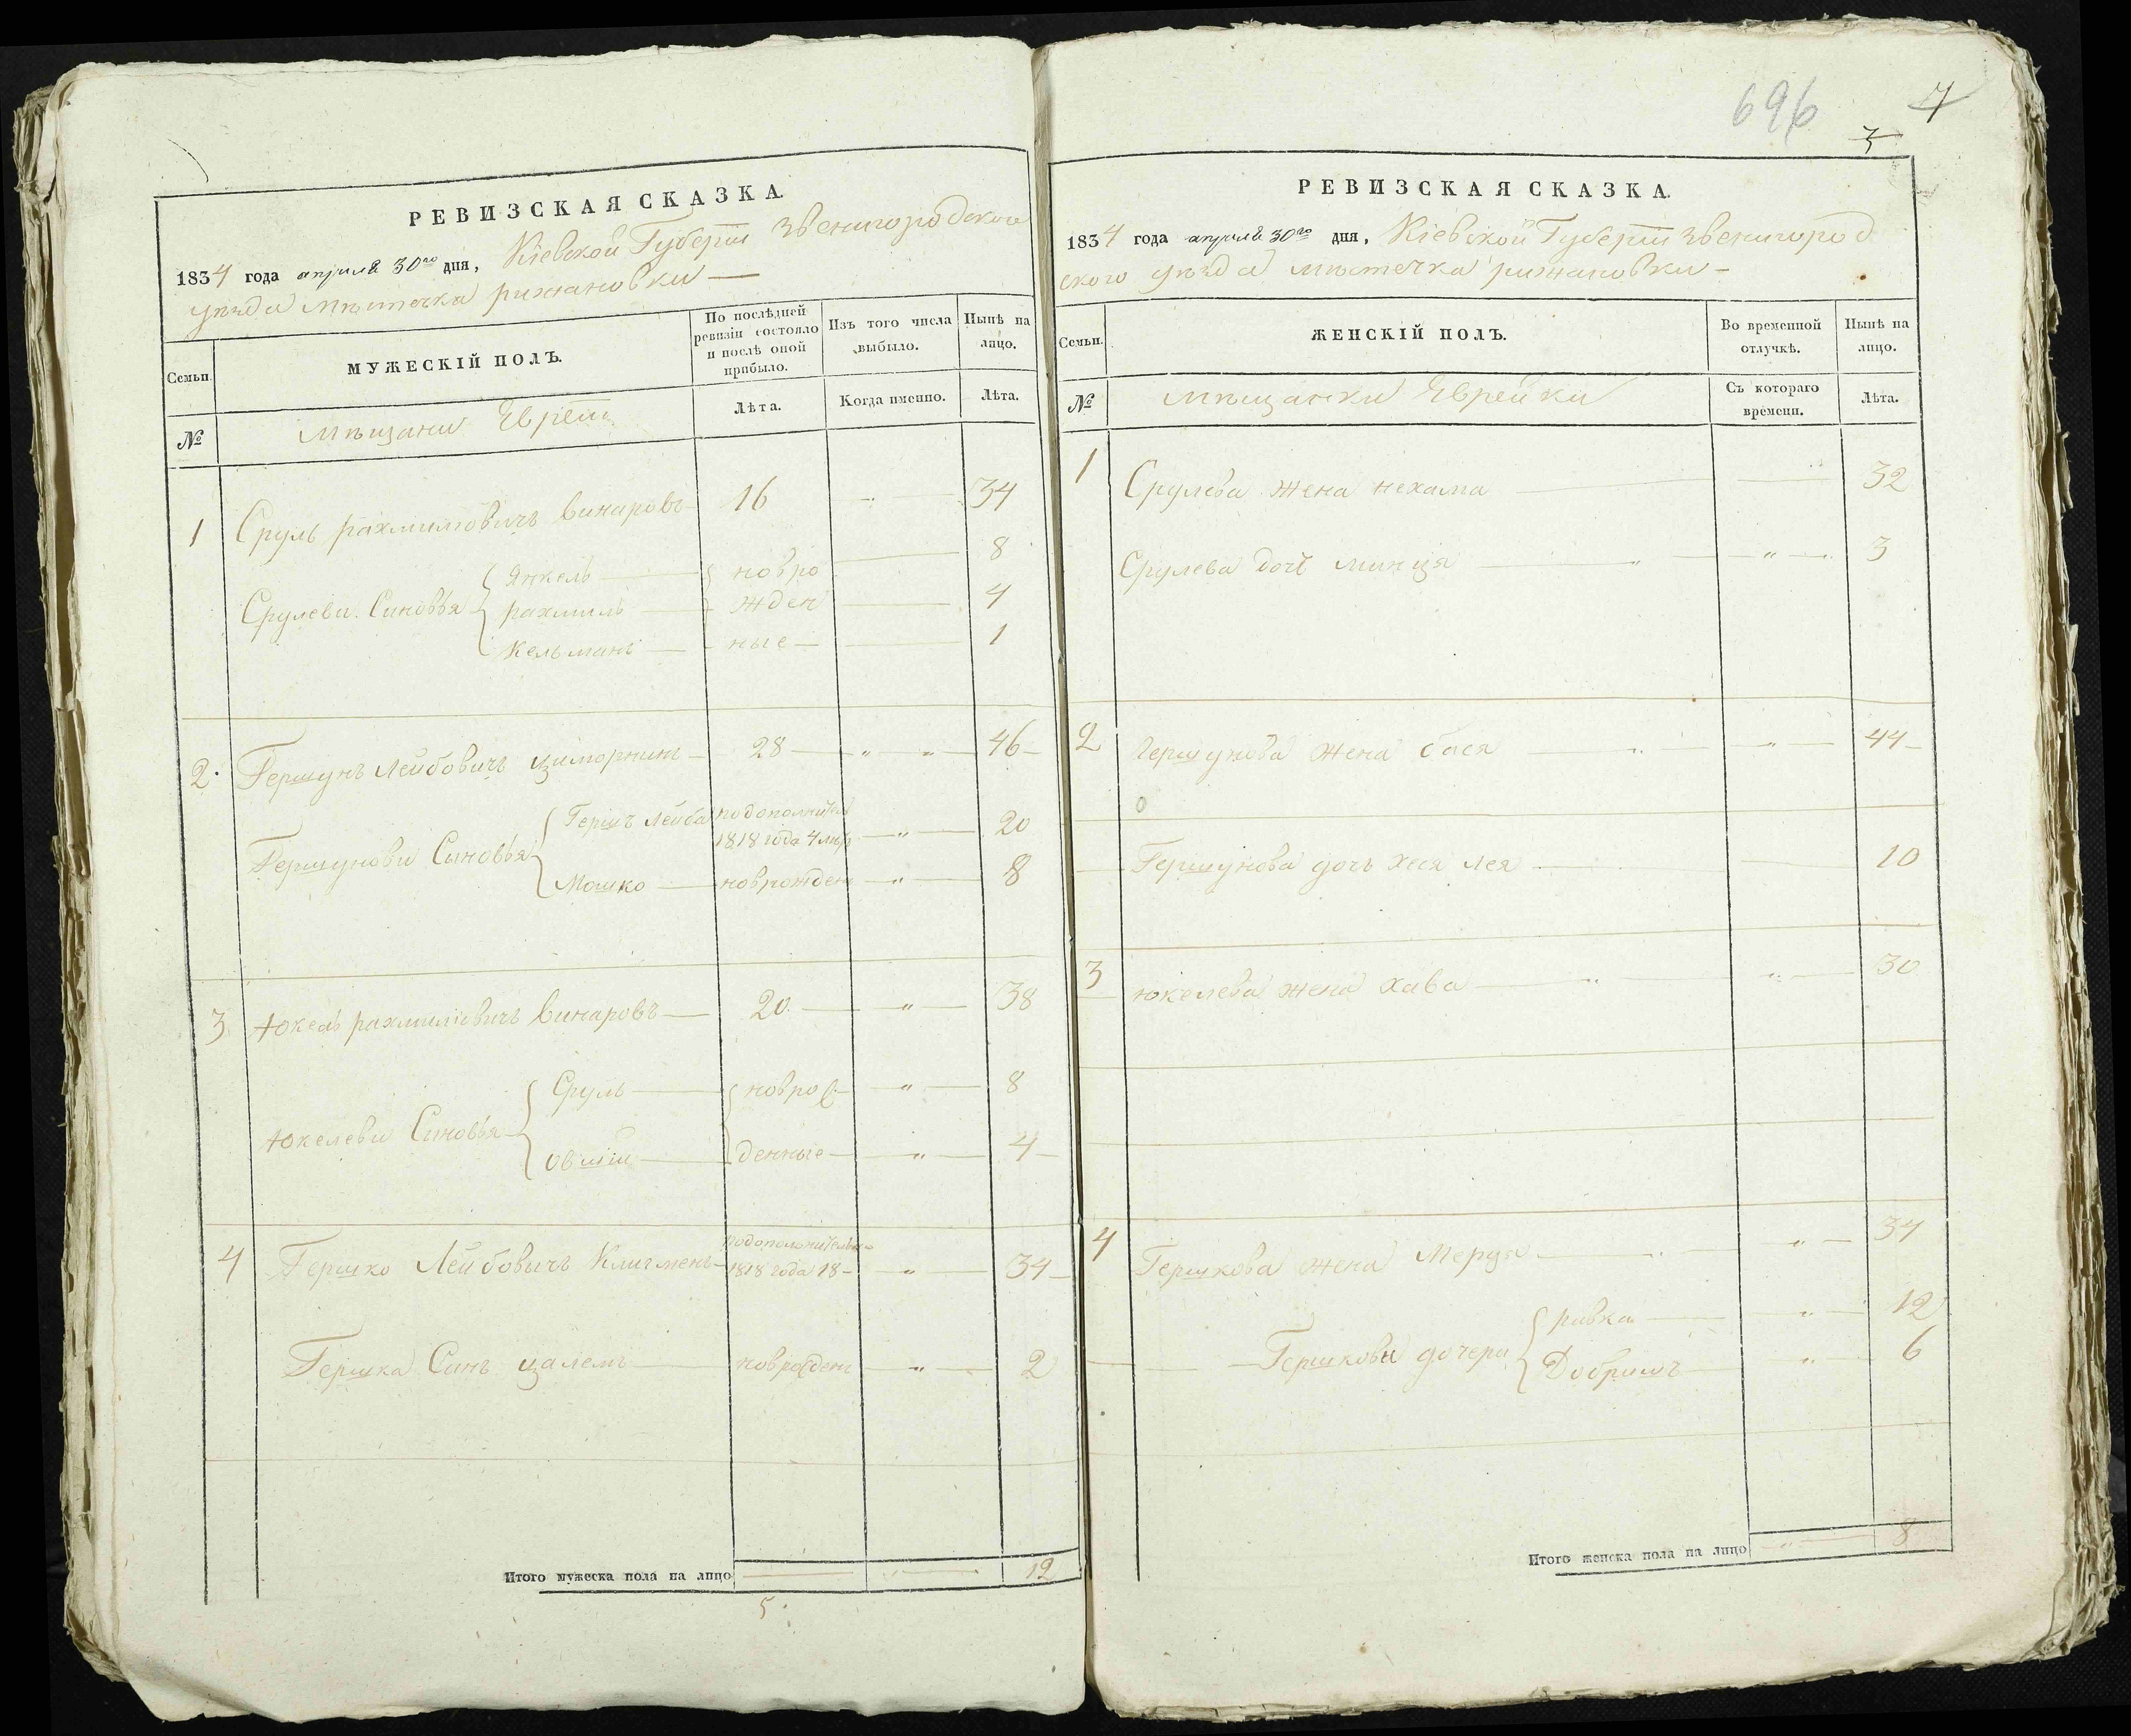 РЕВИЗСКАЯ СКАЗКА.
1834 года апреля 30го дня, Кіевской Губерніи Звенигородского
уѣзда мѣстечка рижановки —
Семьи.
МУЖЕСКІЙ ПОЛЪ.
По послѣдней ревизіи состояло и послѣ оной прибыло.
Изъ того числа выбыло.
Нынѣ на лицо.
№
мѣщани Евреи
Лѣта.
Когда именно.
Лѣта.
1 Сруль рахмиліовичъ винаровъ 16 — 34
Срулеви Синовья { Янкель — новро — 8
рахмиль — жден — 4
Кельманъ — ные — 1
2. Гершунъ Лейбовичъ 28 — „ „ — 46
Гершунови Синовья { Гершъ Лейба 1818 года 4 — „ — 20
Мошко — новрожден — „ — 8
3 Юкель рахмиліовичъ винаровъ — 20 — „ — 38
Юкелеви Синовья { Сруль — новрож — „ — 8
Овшій — денные — „ — 4
4 Гершко Лейбовичъ Клигменъ подополнительной 1818 года 18 — „ — 34
Гершка Синъ цалемъ — новрожден — „ — 2
Итого мужеска пола на лицо — „ — 12
5.
696 7
3
РЕВИЗСКАЯ СКАЗКА.
1834 года апреля 30го дня, Кіевской Губерніи Звенигород
ского уѣзда мѣстечка рижановки —
Семьи.
ЖЕНСКІЙ ПОЛЪ.
Во временной отлучкѣ.
Нынѣ на лицо.
№
мѣщанки Еврейки
Съ котораго времени.
Лѣта.
1 Срулева жена нехама — 32
Срулева дочь минця — „ — „ — 3
2 Гершунова жена бася — „ — „ — 44
Гершунова дочь хеся лея — 10
3 Юкелева жена хава — „ — „ — 30
4 Гершкова жена Мерця — „ — 34
Гершкови дочери { ривка — „ — 12
Добришъ — „ — 6
Итого женска пола на лицо — „ — 8